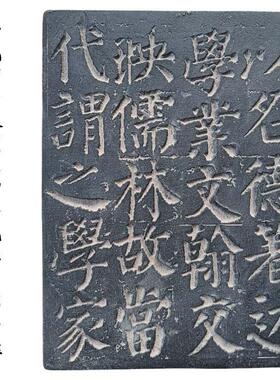 名德著
學業文翰交
映儒林故當
代謂之學家